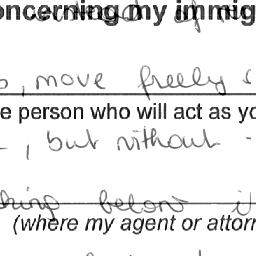 oncerning my immig
, move freely
e person who will act as yo
, but without -
below it
(where my agent or attorn